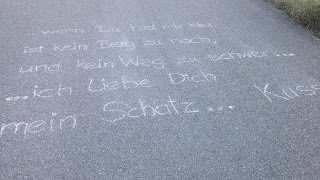 ...wenn Du bei mir bist,
ist kein Berg zu hoch,
und kein Weg zu schwer...
...ich Liebe Dich
mein Schatz... Kuss